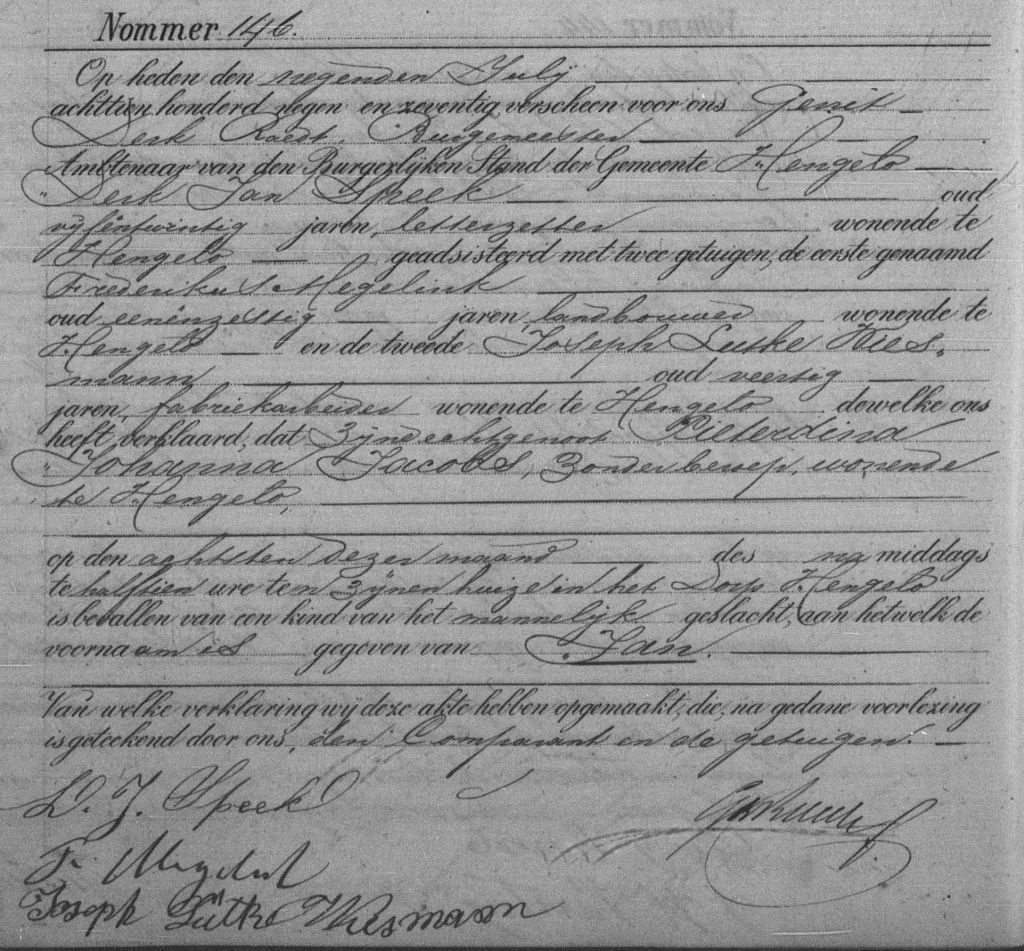 Nommer 146.
Op heden den negenden July
achttien honderd negen en zeventig verscheen voor ons Gerrit
Derk Roedt, Burgemeester
Ambtenaar van den Burgerlijken Stand der Gemeente Hengelo
Derk Jan Speek oud
vyfentwintig jaren, letterzetter wonende te
Hengelo, geadsisteerd met twee getuigen, de eerste genaamd
Frederikus Megelink
oud eenenzestig jaren, landbouwer wonende te
Hengelo en de tweede Joseph Lutke Wies
mann oud veertig
jaren, fabriekarbeider wonende te Hengelo dewelke ons
heeft verklaard, dat zyne echtgenoot Pieterdina
Johanna Jacobs, zonder beroep, wonende
te Hengelo,
op den achtsten dezer maand des na middags
te halftien ure ten zynen huize in het Dorp Hengelo
is bevallen van een kind van het mannelyk geslacht, aan hetwelk de
voornaam is gegeven van Jan.
Van welke verklaring wij deze akte hebben opgemaakt, die, na gedane voorlezing
is geteekend door ons, den Comparant en de getuigen.
D. J. Speek
Joseph Lutke Wiesmann